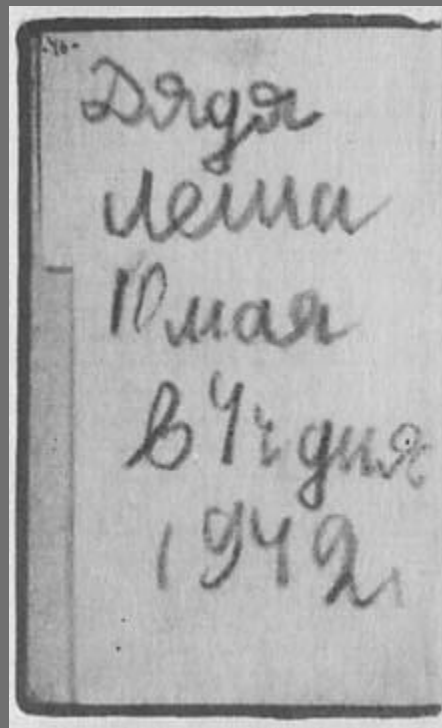 -46-
Дядя
Леша
10 мая
в 4 ч дня
1942